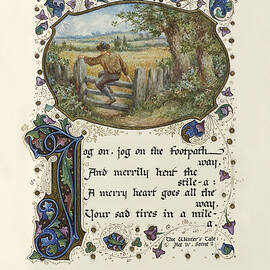 Jog on, jog on the Footpath
way,
And merrily hent the
stile-a
A merry heart goes all the
way,
Your sad tires in a mile-
a.
The Winter's Tale
Act IV. Scene II